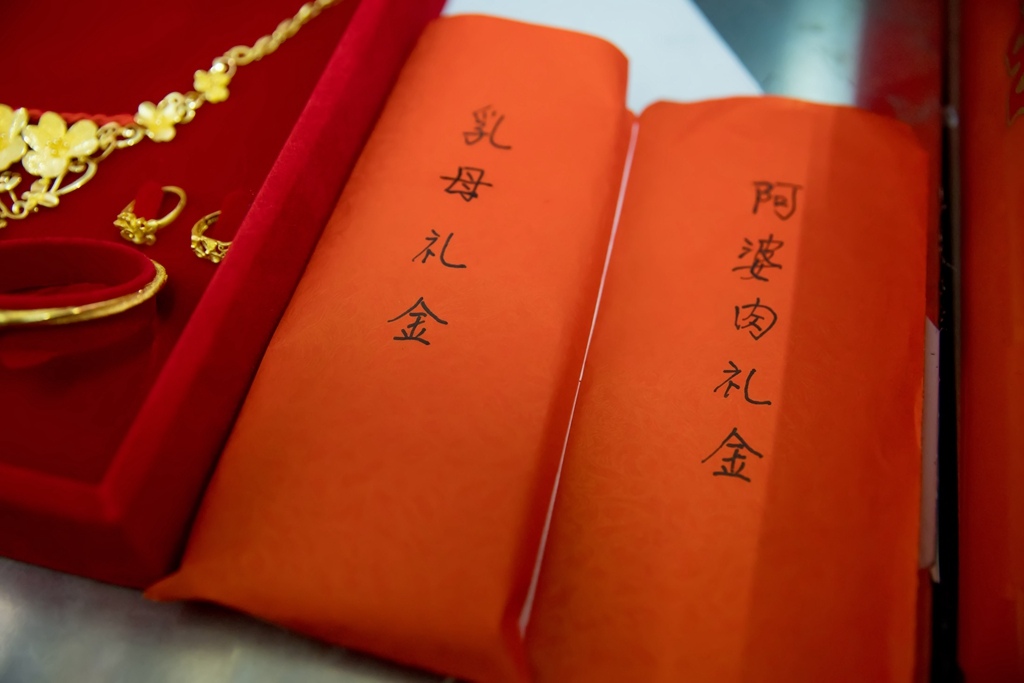 乳母礼金
阿婆肉礼金